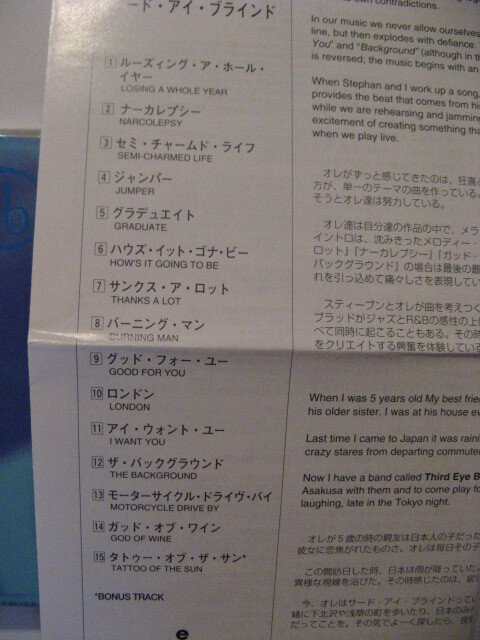 ード・アイ・ブラインド
1 ルーズィング・ア・ホール・
イヤー
LOSING A WHOLE YEAR
2 ナーカレプシー
NARCOLEPSY
3 セミ・チャームド・ライフ
SEMI-CHARMED LIFE
4 ジャンパー
JUMPER
5 グラデュエイト
GRADUATE
6 ハウズ・イット・ゴナ・ビー
HOW'S IT GOING TO BE
7 サンクス・ア・ロット
THANKS A LOT
8 バーニング・マン
BURNING MAN
9 グッド・フォー・ユー
GOOD FOR YOU
10 ロンドン
LONDON
11 アイ・ウォント・ユー
I WANT YOU
12 ザ・バックグラウンド
THE BACKGROUND
13 モーターサイクル・ドライヴ・バイ
MOTORCYCLE DRIVE BY
14 ガッド・オブ・ワイン
GOD OF WINE
15 タトゥー・オブ・ザ・サン*
TATTOO OF THE SUN
*BONUS TRACK
e
own contradictions.
In our music we never allow ourselves
line, but then explodes with defiance.
You" and "Background" (although in th
is reversed; the music begins with an
When Stephan and I work up a song,
provides the beat that comes from his
while we are rehearsing and jamming
excitement of creating something tha
when we play live.
オレがずっと感じてきたのは、狂喜と
方が、単一のテーマの曲を作っている。
そうとオレ達は努力している。
オレ達は自分達の作品の中で、メラ
イントロは、沈みきったメロディー・
ロット』『ナーカレプシー』『ガッド・
バックグラウンド』の場合は最後の最
れを引っ込めて痛々しさを表現してい
スティーブンとオレが曲を考えつく
ブラッドがジャズとR&Bの感性の上
べて同時に起こることもある。その時
をクリエイトする興奮を体験している
When I was 5 years old My best frie
his older sister. I was at his house ev
Last time I came to Japan it was raini
crazy stares from departing commute
Now I have a band called Third Eye B
Asakusa with them and to come play fo
laughing, late in the Tokyo night.
オレが5歳の時の親友は日本人の子だった
彼女に恋焦がれたものさ。オレは毎日その子
この間訪日した時、日本は雨が降っていた。
異様な視線を浴びた。その時感じたのは、
今、オレはサード・アイ・ブラインドってい
緒に下北沢や浅草の町を歩いたり、日本のみん
だってことを。その気でよーく探したら、夜
b